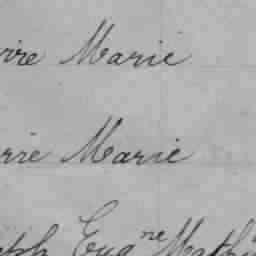 rre Marie
rre Marie
eph Eug^ne Math